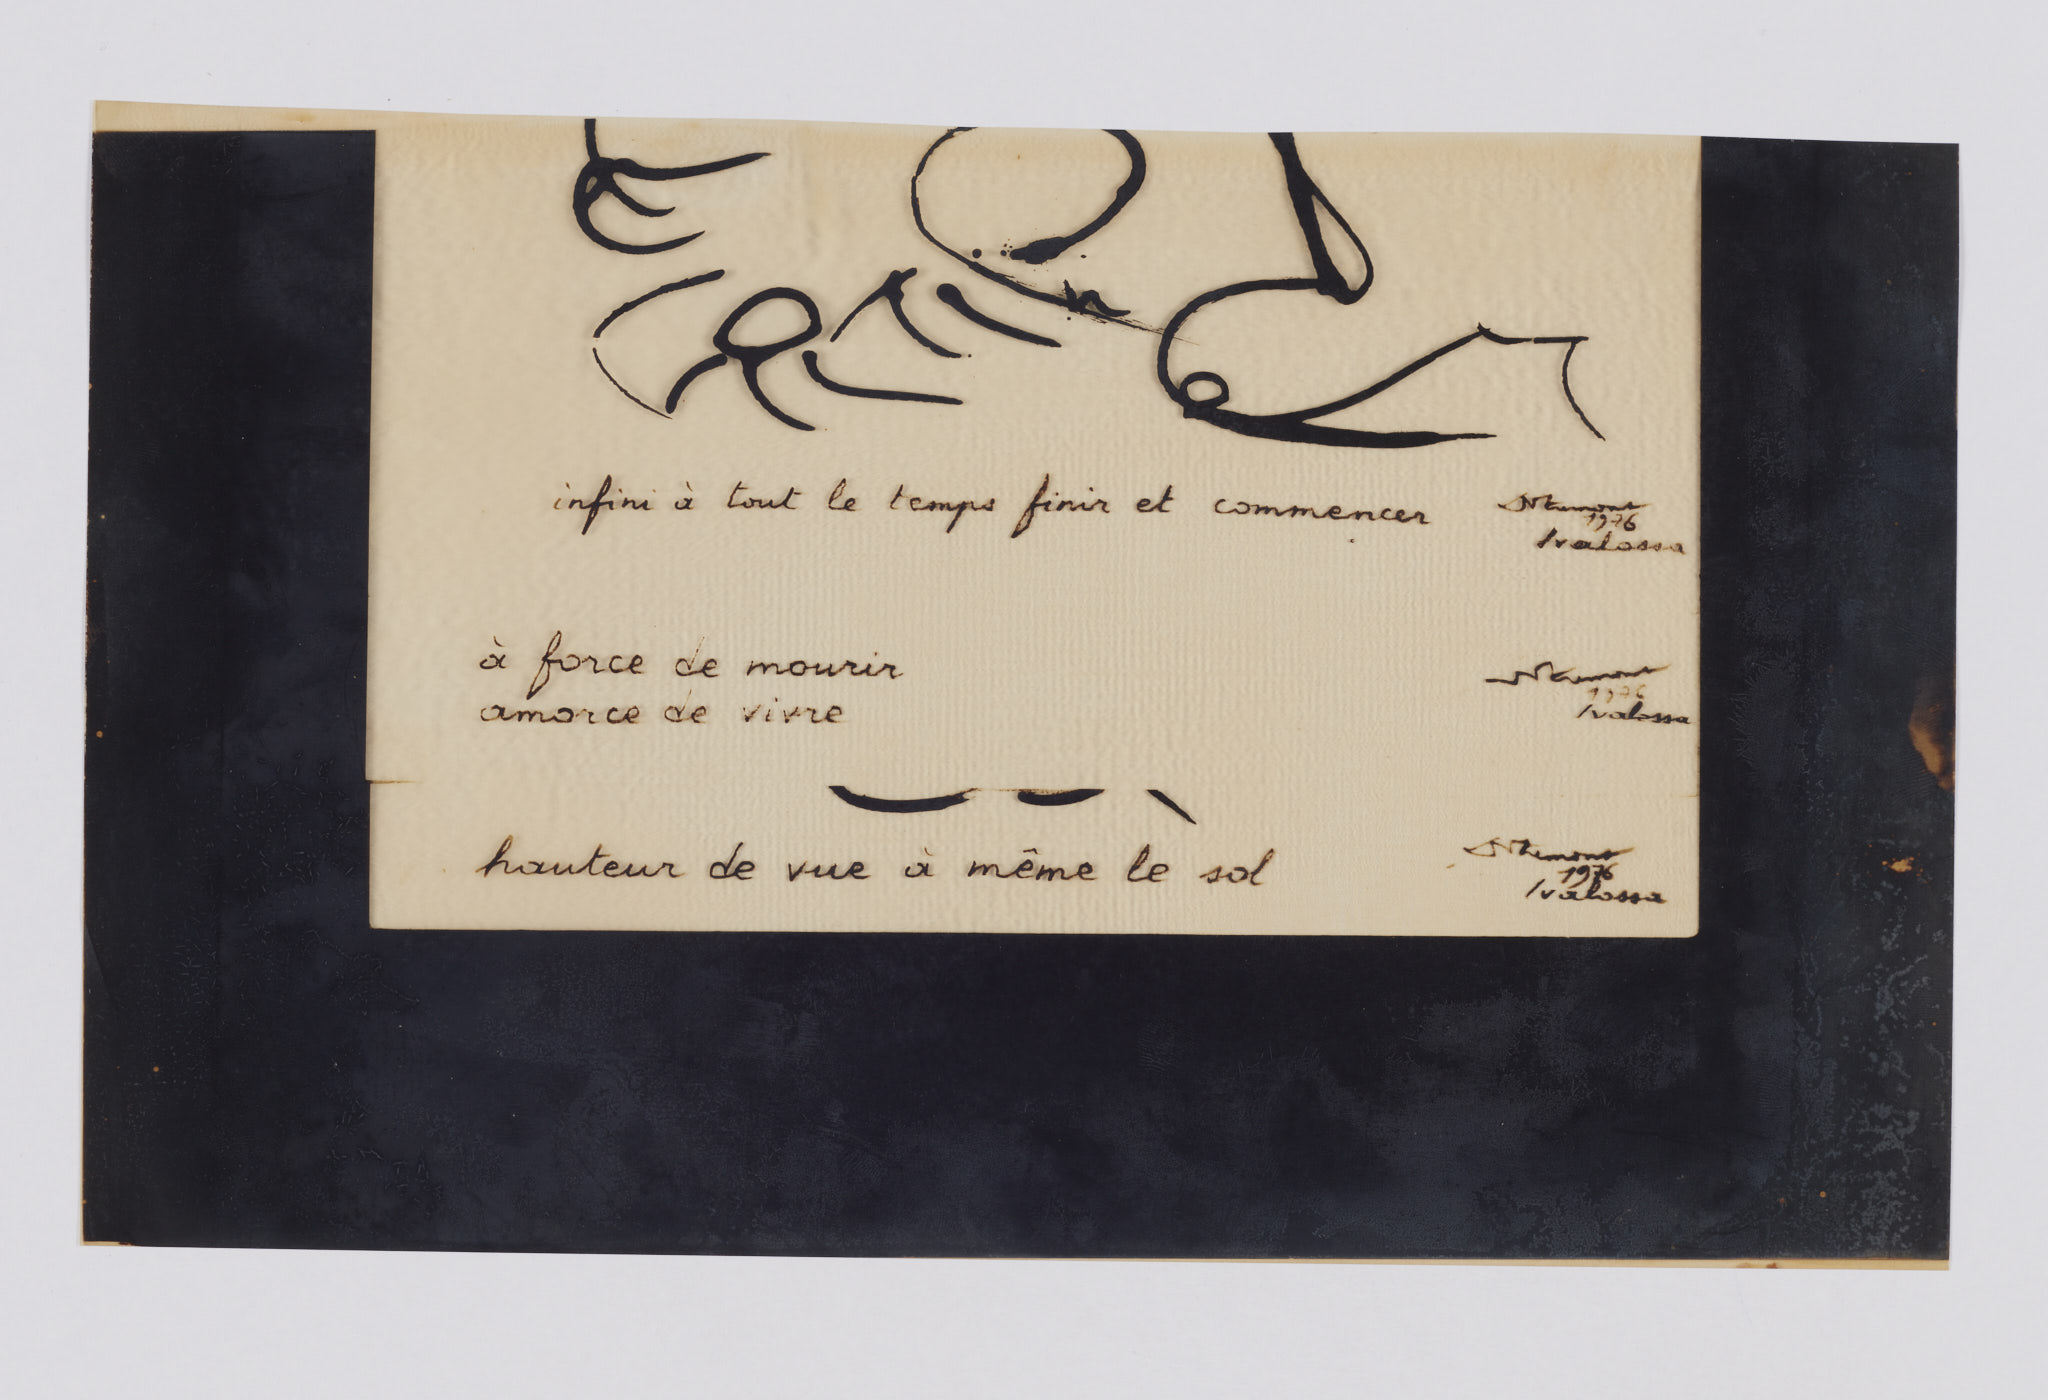 infini à tout le temps finir et commencer
1976
Ivalossa
à force de mourir
amorce de vivre
1976
Ivalossa
hauteur de vue à même le sol
1976
Ivalossa